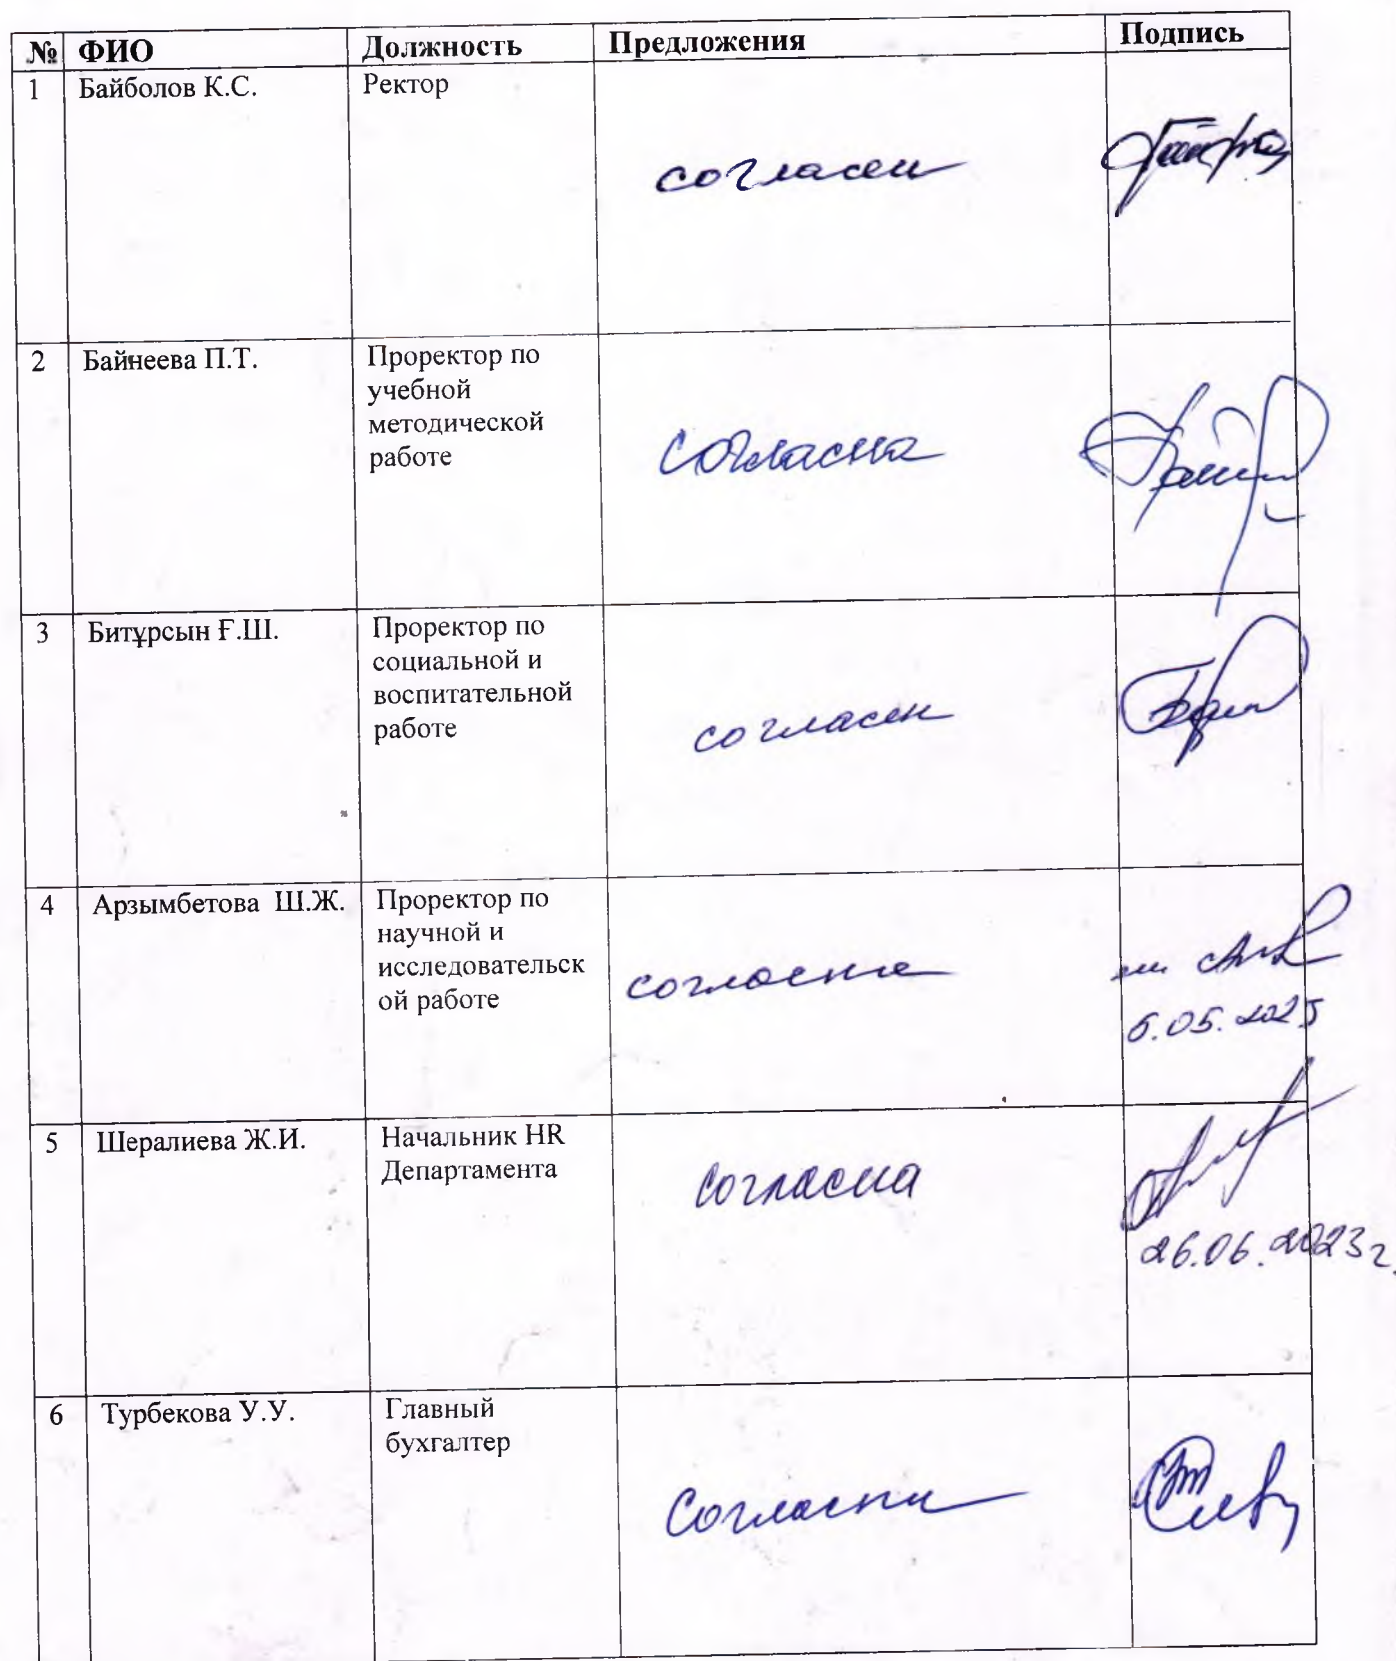 № ФИО Должность Предложения Подпись
1 Байболов К.С. Ректор
согласен
2 Байнеева П.Т. Проректор по
учебной
методической
работе
согласна
3 Битұрсын Ғ.Ш. Проректор по
социальной и
воспитательной
работе
согласен
4 Арзымбетова Ш.Ж. Проректор по
научной и
исследовательск
ой работе
согласна
5.05.2025
5 Шералиева Ж.И. Начальник HR
Департамента
согласна
26.06.2023г.
6 Турбекова У.У. Главный
бухгалтер
Согласна